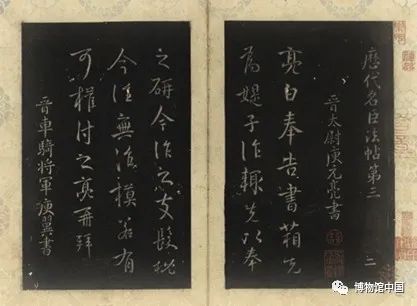 歷代名臣法帖第三
晉太尉庾元亮書
亮白奉告書箱先
為媞子作輒先以奉
之研今作之支髮枇
今往無復模若有
可權付之亮再拜
晉車騎將軍庾翼書
三
博物馆中国